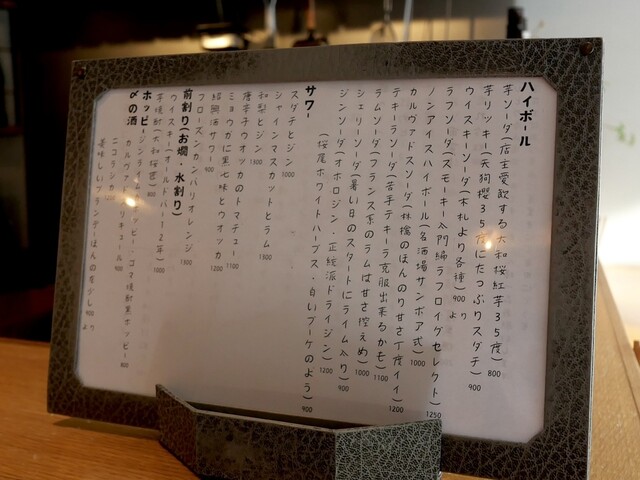 ハイボール
芋ソーダ(店主愛飲する大和桜紅芋35度) 800
芋リッキー(天狗櫻35度にたっぷりスダチ) 900
ウイスキーソーダ(木札より各種) 900 より
ラフソーダ(スモーキー&門締ラフロイグセレクト) 1250
ノンアイスハイボール(名酒場サンボア式) 1000
カルヴァドスソーダ(林檎のほんのり甘さ丁度イイ) 1200
テキーラソーダ(苦手テキーラ克服出来るかも) 1100
ラムソーダ(フランス系のラムは甘さ控えめ) 1000
シェリーソーダ(暑い日のスタートにライム入り) 900
ジンソーダ(オホロジン・正統派ドライジン) 1200
(桜尾ホワイトハーブス・白いブーケのよう) 900
サワー
スダチとジン 1000
シャインマスカットとラム 1300
和梨とジン 1300
唐辛子ウオッカのトマチュー 1100
ミョウガに黒七味とウオッカ 1200
紹岡酒サワー 900
フローズンカンパリオレンジ 1300
前割り(お燗・水割り)
ウイスキー(オールドパー12年) 1000
芋焼酎(大和桜匠) 800
ホッピー
ジンライムホッピー・ゴマ焼酎黒ホッピー 800
〆の酒
カルヴァドス リキュール 900
ニコラシカ 1200
美味しいブランデーほんの少し 900 より